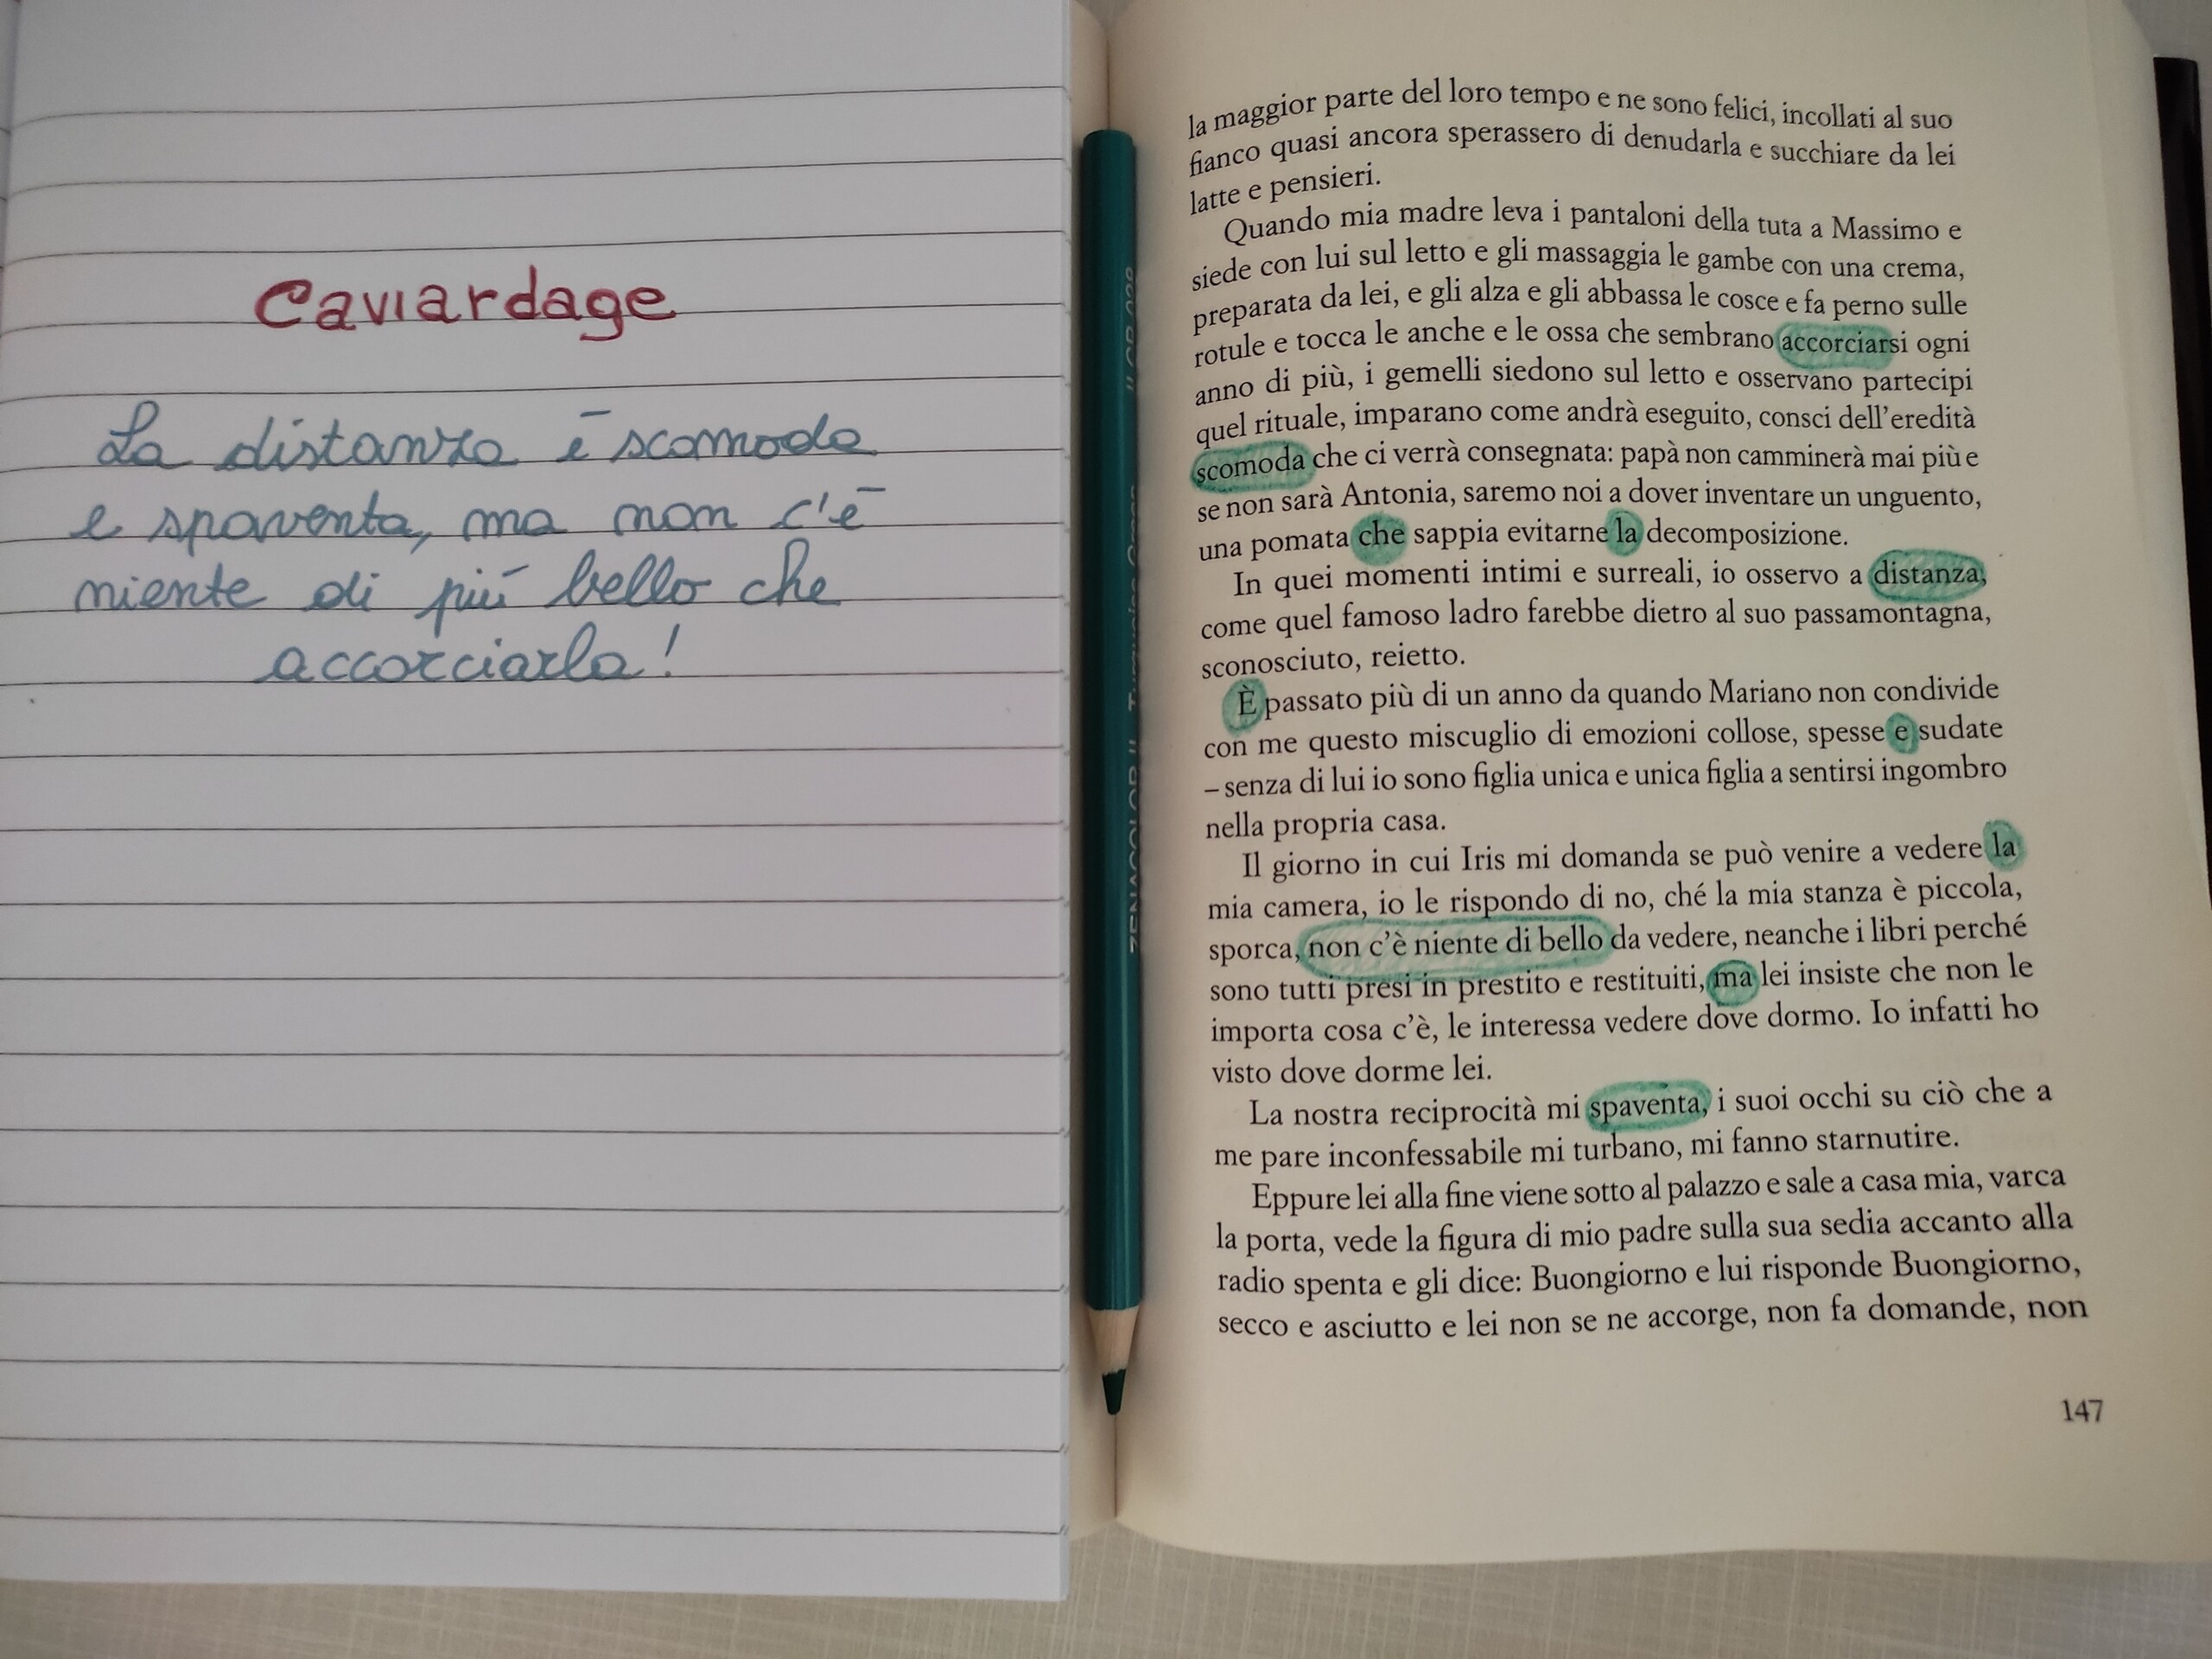 Caviardage
La distanza è scomoda
e spaventa, ma non c'è
niente di più bello che
accorciarla!
ZENACOLOR II
la maggior parte del loro tempo e ne sono felici, incollati al suo
fianco quasi ancora sperassero di denudarla e succhiare da lei
latte e pensieri.
Quando mia madre leva i pantaloni della tuta a Massimo e
siede con lui sul letto e gli massaggia le gambe con una crema,
preparata da lei, e gli alza e gli abbassa le cosce e fa perno sulle
rotule e tocca le anche e le ossa che sembrano accorciarsi ogni
anno di più, i gemelli siedono sul letto e osservano partecipi
quel rituale, imparano come andrà eseguito, consci dell'eredità
scomoda che ci verrà consegnata: papà non camminerà mai più e
se non sarà Antonia, saremo noi a dover inventare un unguento,
una pomata che sappia evitarne la decomposizione.
In quei momenti intimi e surreali, io osservo a distanza,
come quel famoso ladro farebbe dietro al suo passamontagna,
sconosciuto, reietto.
È passato più di un anno da quando Mariano non condivide
con me questo miscuglio di emozioni collose, spesse e sudate
– senza di lui io sono figlia unica e unica figlia a sentirsi ingombro
nella propria casa.
Il giorno in cui Iris mi domanda se può venire a vedere la
mia camera, io le rispondo di no, ché la mia stanza è piccola,
sporca, non c'è niente di bello da vedere, neanche i libri perché
sono tutti presi in prestito e restituiti, ma lei insiste che non le
importa cosa c'è, le interessa vedere dove dormo. Io infatti ho
visto dove dorme lei.
La nostra reciprocità mi spaventa, i suoi occhi su ciò che a
me pare inconfessabile mi turbano, mi fanno starnutire.
Eppure lei alla fine viene sotto al palazzo e sale a casa mia, varca
la porta, vede la figura di mio padre sulla sua sedia accanto alla
radio spenta e gli dice: Buongiorno e lui risponde Buongiorno,
secco e asciutto e lei non se ne accorge, non fa domande, non
147